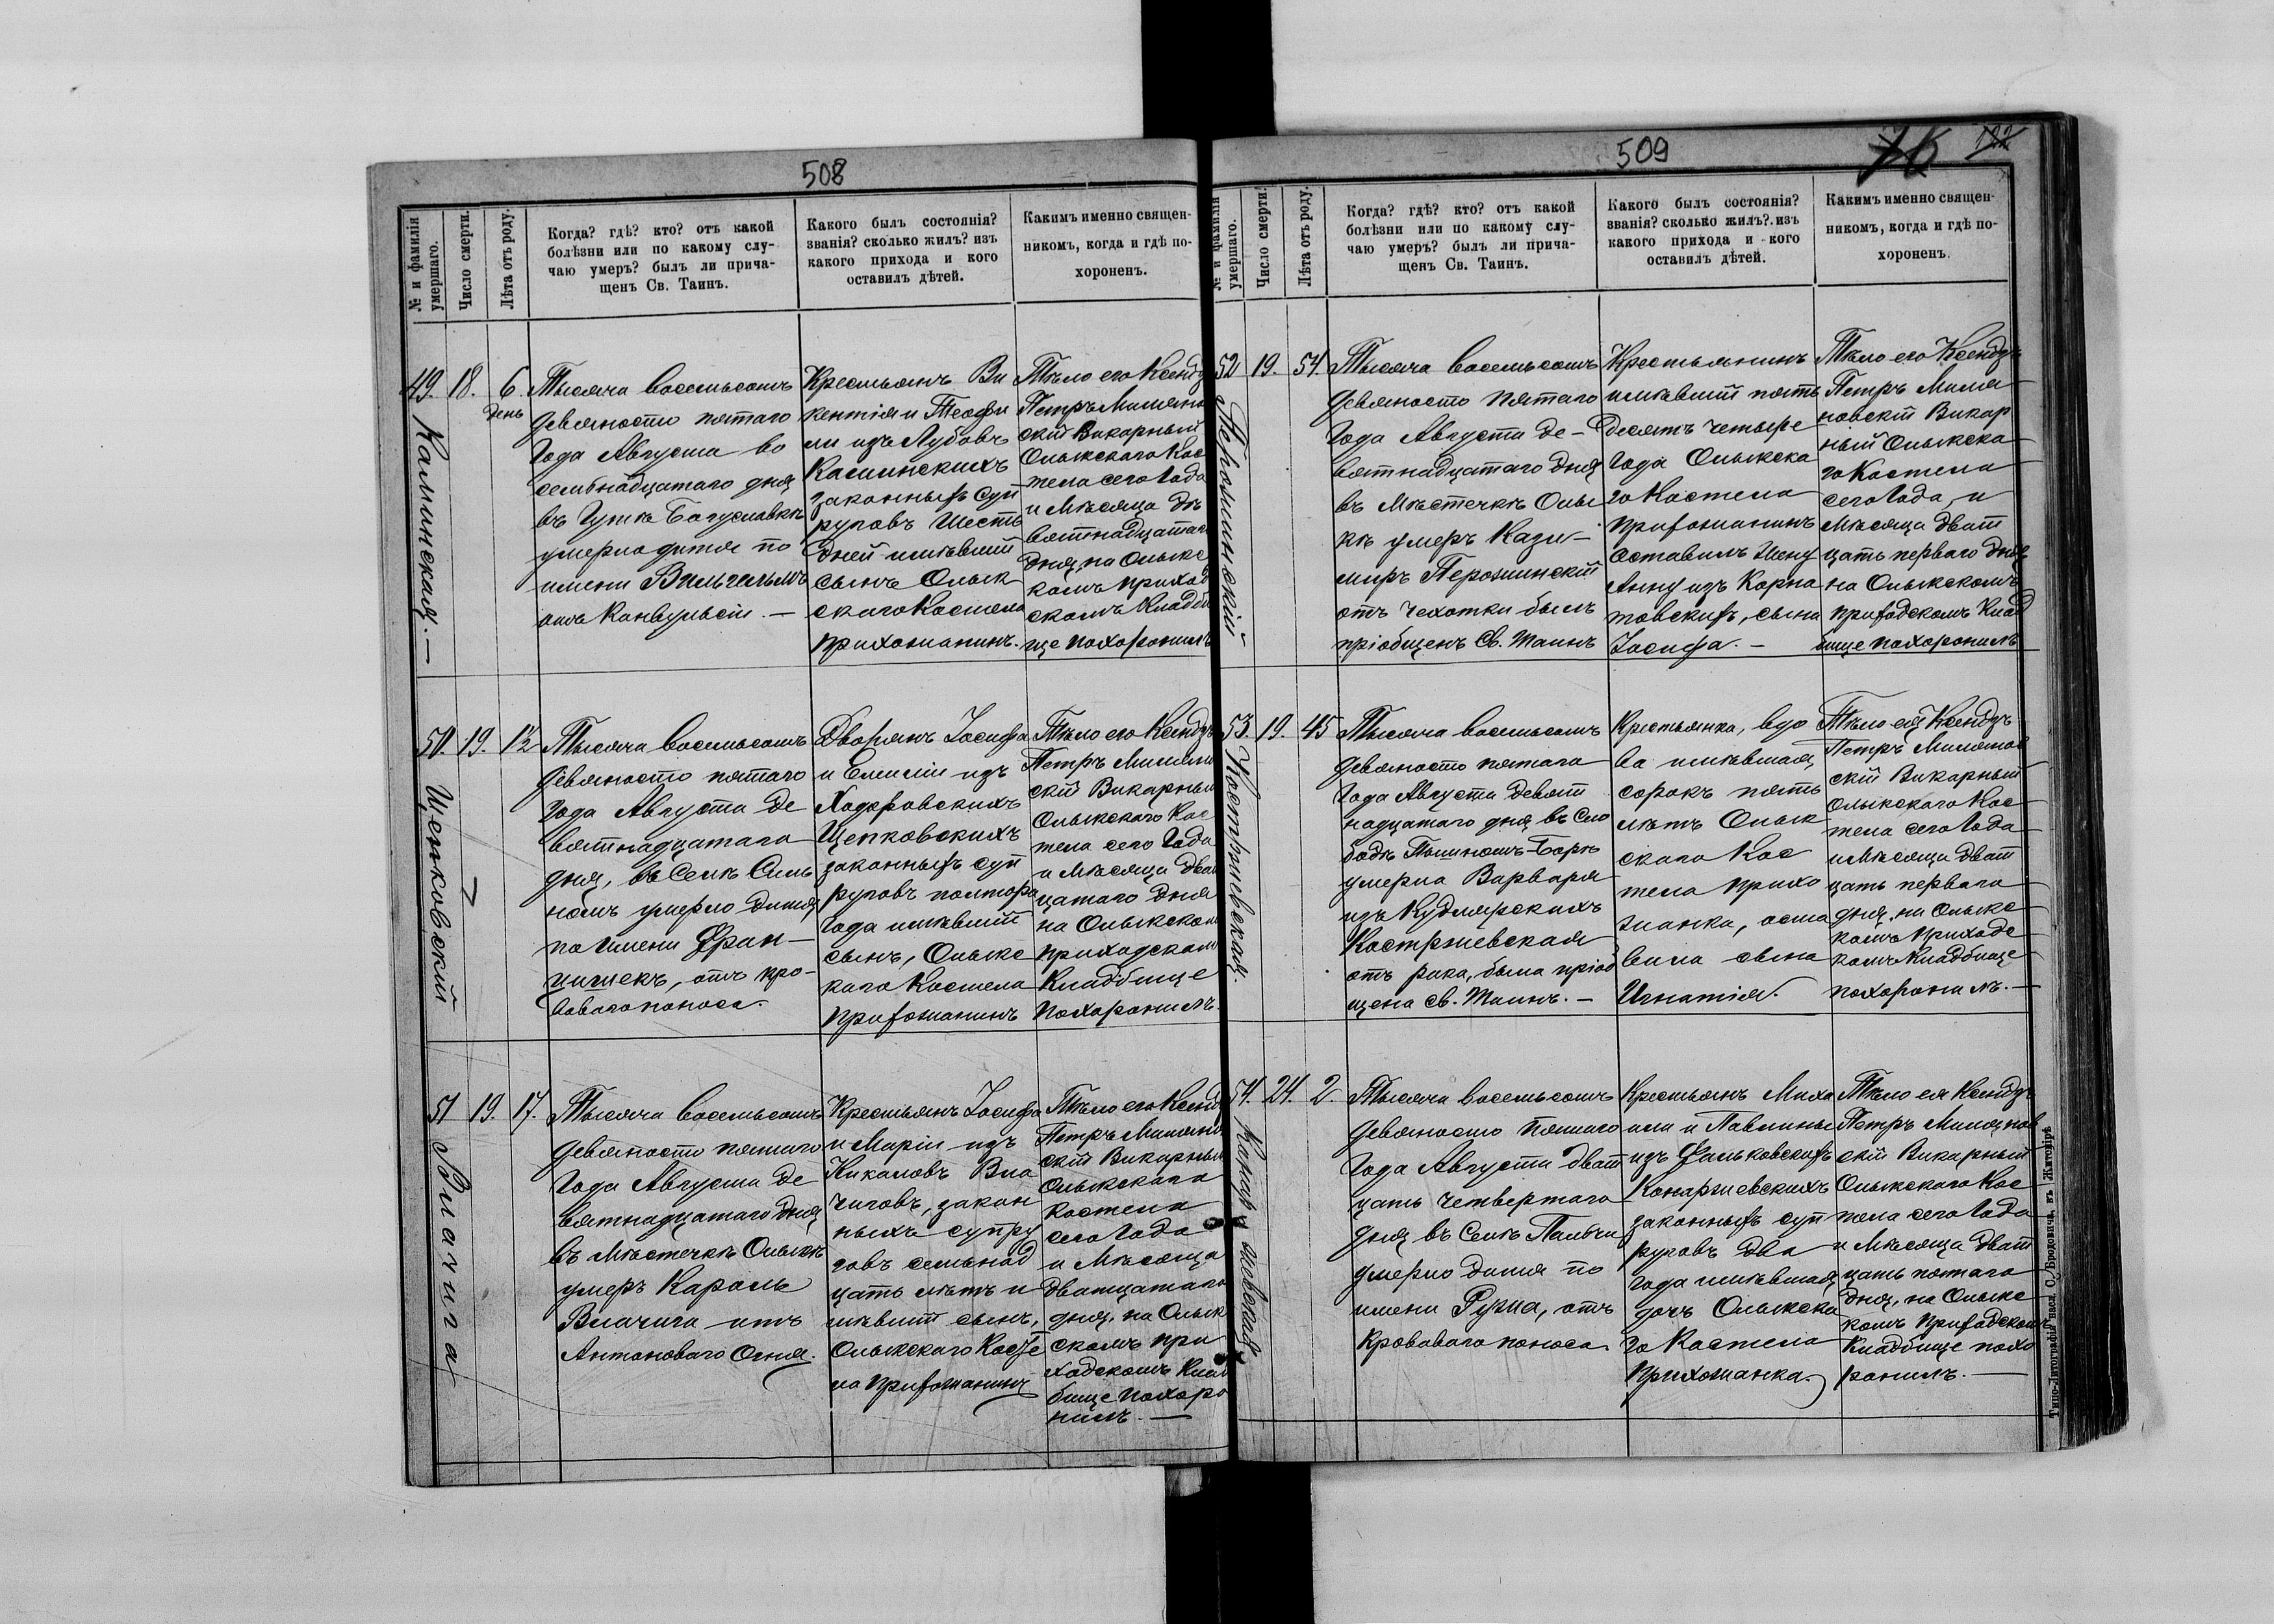 508
№ и фамилія умершаго.
Число смерти.
Лѣта отъ роду.
Когда? гдѣ? кто? отъ какой
болѣзни или по какому слу-
чаю умеръ? былъ ли прича-
щенъ Св. Таинъ.
Какого былъ состоянія?
званія? сколько жилъ? изъ
какого прихода и кого
оставилъ дѣтей.
Какимъ именно священ-
никомъ, когда и гдѣ по-
хороненъ.
49.
Калминская. —
18.
6
день
Тысяча восемьсотъ
девяносто пятаго
Года Августа во
семьнадцатаго дня
въ Гутѣ Богуславкѣ
умерло дитя по
имени Вильгельмъ
отъ Канвульсіи. —
Крестьянъ Ви
кентія и Теофи
ли изъ Лубовъ
Калминскихъ
законныхъ суп
руговъ Шесть
дней имѣвшій
сынъ Олык
скаго Костела
прихожанинъ.
Тѣло его Ксендзъ
Петръ Миляно
скій Викарный
Олыкскаго Кос
тела сего Года
и Мѣсяца де
вятнадцатаго
дня, на Олыкс
комъ приход
скомъ Кладби
ще похоронилъ
50.
Щепковскій
19.
1½
Тысяча восемьсотъ
девяносто пятаго
Года Августа де
вятнадцатаго
дня, въ Селѣ Силь
номъ умерло дитя
по имени Фран-
цишекъ, отъ кро-
ваваго поноса.
Дворянъ Іосифа
и Емиліи изъ
Ходоровскихъ
Щепковскихъ
законныхъ суп
руговъ полтора
года имѣвшій
сынъ, Олыкс
каго Костела
прихожанинъ
Тѣло его Ксендзъ
Петръ Миляно
скій Викарный
Олыкскаго Кос
тела сего Года
и Мѣсяца два
цатаго дня
на Олыкском
приходском
Кладбище
похоронилъ.
51
Влачига
19.
17.
Тысяча восемьсотъ
девяносто пятаго
Года Августа де
вятнадцатаго дня
въ Мѣстечкѣ Олыкѣ
умеръ Кароль
Влачига отъ
Антоноваго Огня.
Крестьянъ Іосифа
и Маріи изъ
Никаловъ Вла
чиговъ, закон
ныхъ супру
говъ семьнад
цать лѣтъ и
мѣвшій сынъ,
Олыкскаго Косте
ла прихожанинъ
Тѣло его Ксенд
Петръ Миляно
скій Викарный
Олыкскаго
костела
сего Года
и Мѣсяца
Дватцатаго
дня, на Олык
скомъ при
ходскомъ Клад
бище похоро
нилъ. —
509
122
№ и фамилія умершаго.
Число смерти.
Лѣта отъ роду.
Когда? гдѣ? кто? отъ какой
болѣзни или по какому слу-
чаю умеръ? былъ ли прича-
щенъ Св. Таинъ.
Какого былъ состоянія?
званія? сколько жилъ? изъ
какого прихода и кого
оставилъ дѣтей.
Какимъ именно священ-
никомъ, когда и гдѣ по-
хороненъ.
52
Перожинскій
19.
54.
Тысяча восемьсотъ
девяносто пятаго
Года Августа де-
вятнадцатаго дня
въ Мѣстечкѣ Олы
кѣ умеръ Кази-
миръ Перожинскій
отъ чехотки былъ
пріобщенъ Св. Таинъ
Крестьянинъ
имѣвшій пять
десятъ четыре
Года Олыкска
го Костела
прихожанинъ
Оставилъ Жену
Анну изъ Корна
товскихъ, сына
Іосифа. —
Тѣло его Ксендзъ
Петръ Миля
новскій Викар
ный Олыкска
го Костела
сего Года и
Мѣсяца дват
цать перваго дня
на Олыкскомъ
приходскомъ Клад
бище похоронилъ
53.
Костржевская.
19.
45
Тысяча восемьсотъ
девяносто пятаго
Года Августа девят
надцатаго дня въ Сло
бодѣ Пышномъ-Борѣ
умерла Варвара
изъ Кудлярскихъ
Костржевская
отъ рака, была пріоб
щена св. Таинъ. —
Крестьянка, вдо
ва имѣвшая
сорокъ пять
лѣтъ Олык
скаго Кос
тела прихо
жанка, оста
вила сына
Игнатія.
Тѣло ей Ксендзъ
Петръ Милянов
скій Викарный
Олыкскаго Кос
тела сего Года
и Мѣсяца дват
цать перваго
дня, на Олыкс
комъ приходс
комъ Кладбище
похоронилъ. —
54.
24.
2.
Тысяча восемьсотъ
девяносто пятаго
Года Августа дват
цать четвертаго
дня въ Селѣ Пальчи
умерло дитя по
имени Рузиа, отъ
кроваваго поноса.
Крестьянъ Миха
или и Павлины
изъ Фальковскихъ
Конаржевскихъ
законныхъ суп
руговъ два
года имѣвшая
дочь Олыкска
го Костела
прихожанка.
Тѣло ея Ксендзъ
Петръ Милянов
скій Викарный
Олыкскаго Кос
тела сего Года
и Мѣсяца дват
цать пятаго
дня, на Олыкс
комъ приходском
Кладбище похо
ронилъ. —
Типо-Литографія насл. С. Бродовича, въ Житомірѣ